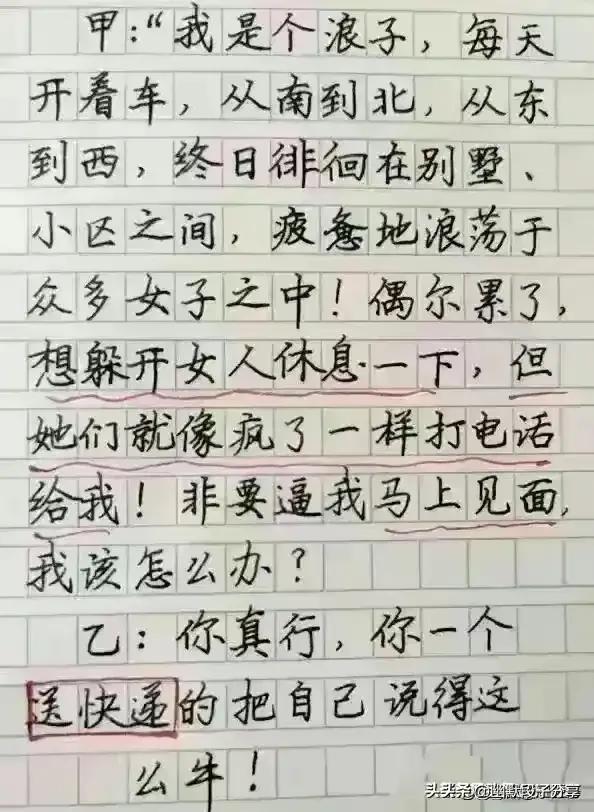 甲:“我是个浪子，每天
开着车，从南到北，从东
到西，终日徘徊在别墅、
小区之间，疲惫地浪荡于
众多女子之中！偶尔累了，
想躲开女人休息一下，但
她们就像疯了一样打电话
给我！非要逼我马上见面，
我该怎么办？
乙：你真行，你一个
送快递的把自己说得这
么牛！
头条 @幽默段子分享